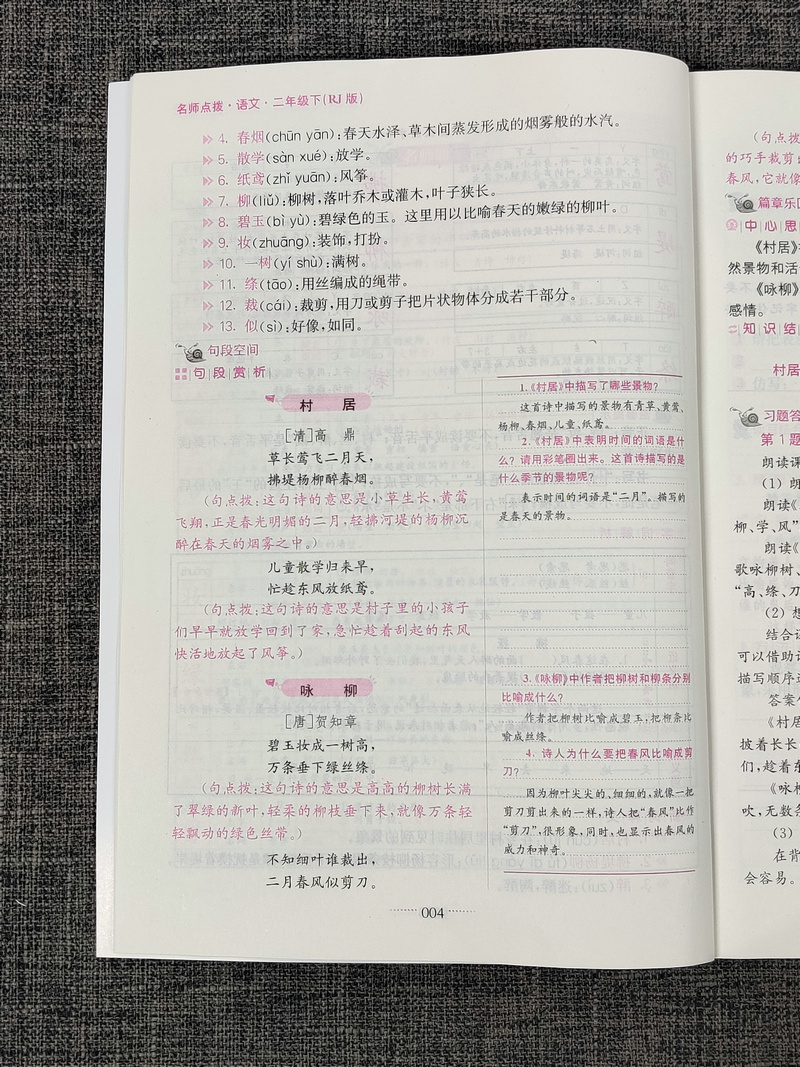 名师点拨·语文·二年级下(RJ版)
4. 春烟(chūn yān):春天水泽、草木间蒸发形成的烟雾般的水汽。
5. 散学(sàn xué):放学。
6. 纸鸢(zhǐ yuān):风筝。
7. 柳(liǔ):柳树,落叶乔木或灌木,叶子狭长。
8. 碧玉(bì yù):碧绿色的玉。这里用以比喻春天的嫩绿的柳叶。
9. 妆(zhuāng):装饰,打扮。
10. 一树(yí shù):满树。
11. 绦(tāo):用丝编成的绳带。
12. 裁(cái):裁剪,用刀或剪子把片状物体分成若干部分。
13. 似(sì):好像,如同。
句段空间
句段赏析
村 居
[清]高 鼎
草长莺飞二月天,
拂堤杨柳醉春烟。
(句点拨:这句诗的意思是小草生长,黄莺
飞翔,正是春光明媚的二月,轻拂河堤的杨柳沉
醉在春天的烟雾之中。)
儿童散学归来早,
忙趁东风放纸鸢。
(句点拨:这句诗的意思是村子里的小孩子
们早早就放学回到了家,急忙趁着刮起的东风
快活地放起了风筝。)
咏 柳
[唐]贺知章
碧玉妆成一树高,
万条垂下绿丝绦。
(句点拨:这句诗的意思是高高的柳树长满
了翠绿的新叶,轻柔的柳枝垂下来,就像万条轻
轻飘动的绿色丝带。)
不知细叶谁裁出,
二月春风似剪刀。
1.《村居》中描写了哪些景物?
这首诗中描写的景物有青草、黄莺、
杨柳、春烟、儿童、纸鸢。
2.《村居》中表明时间的词语是什
么?请用彩笔圈出来。这首诗描写的是
什么季节的景物呢?
表示时间的词语是“二月”。描写的
是春天的景物。
3.《咏柳》中作者把柳树和柳条分别
比喻成什么?
作者把柳树比喻成碧玉,把柳条比
喻成丝绦。
4. 诗人为什么要把春风比喻成剪
刀?
因为柳叶尖尖的、细细的,就像一把
剪刀剪出来的一样,诗人把“春风”比作
“剪刀”,很形象,同时,也显示出春风的
威力和神奇。
004
(句点拨:
的巧手裁剪出
春风,它就像
篇章乐园
中心思
《村居》
然景物和活
《咏柳》
感情。
知识结
村居
习题答
第1题
朗读课
(1)朗
朗读《
柳、学、风”
朗读《
歌咏柳树、
“高、绦、刀
(2)想
结合诗
可以借助
描写顺序
答案
《村居
披着长长
们,趁着东
《咏柳
吹,无数条
(3)
在背
会容易。